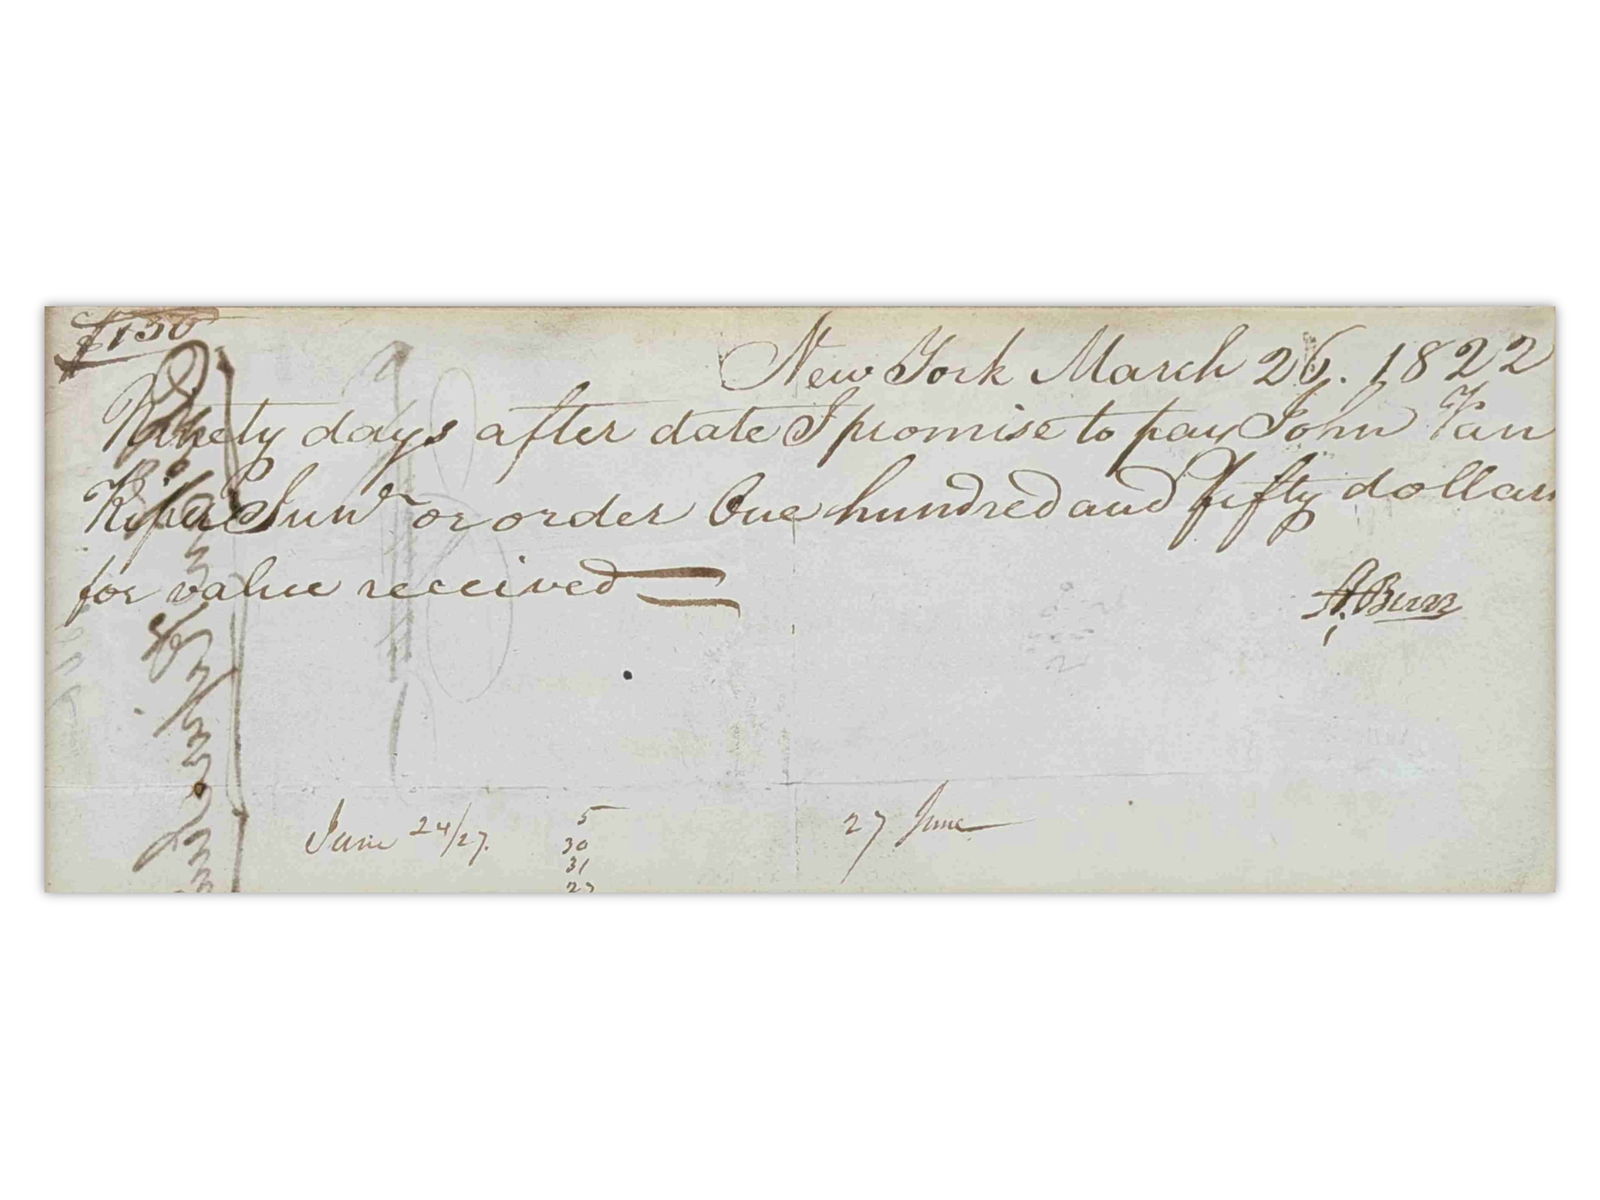 $150
New York March 26. 1822
Ninety days after date I promise to pay John Van
Riper Junr or order One hundred and fifty dollars
for value received
A. Burr
June 24/27.
5
30
31
27
27 June